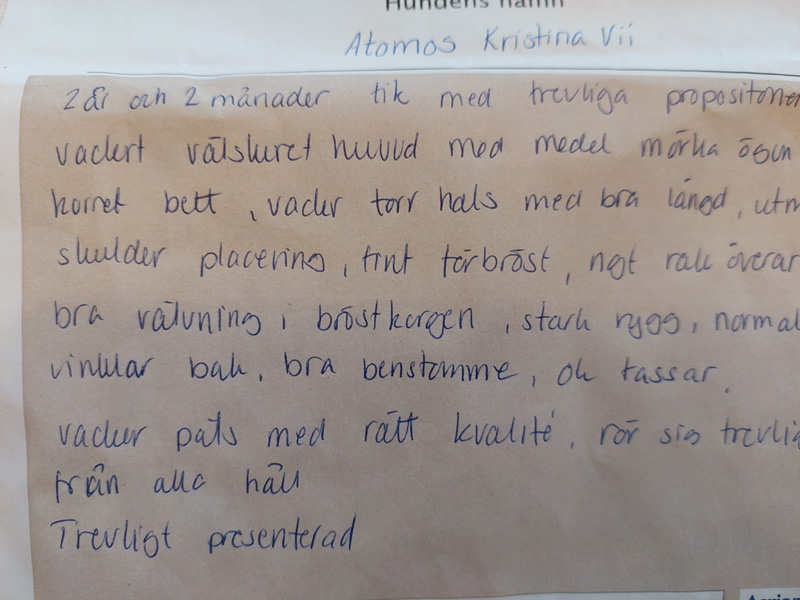 Hundens namn
Atomos Kristina Vii
2 år och 2 månader tik med trevliga propositoner
vackert välskuret huvud med medel mörka ögon
korret bett, vacker torr hals med bra längd, utm
skulder placering, fint förbröst, ngt rak överar
bra välvning i bröstkorgen, stark rygg, normal
vinklar bak, bra benstomme, ok tassar.
vacker päls med rätt kvalité, rör sig trevlig
från alla håll
Trevligt presenterad